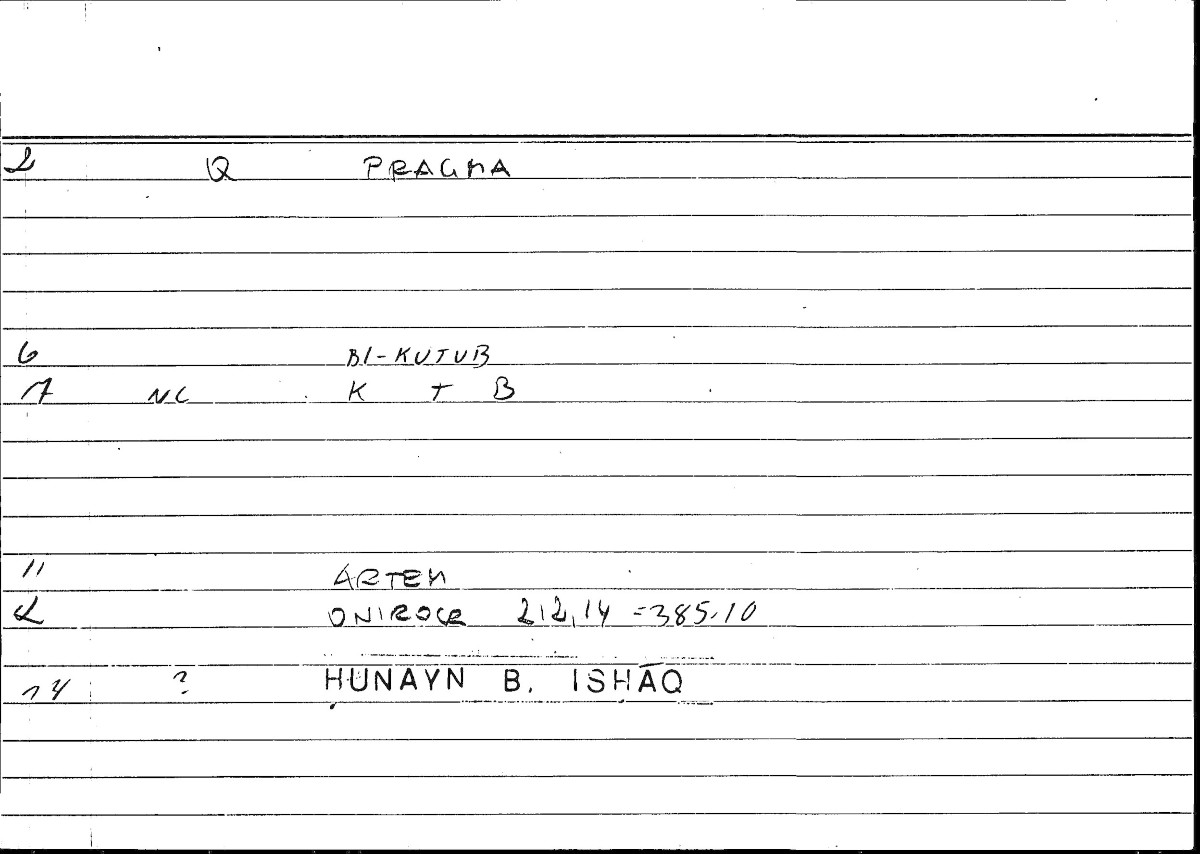 2 Q PRAGMA
6 BI-KUTUB
7 NC K T B
11 ARTEM
ONIROCR 212,14 = 385.10
14 ? ḤUNAYN B. ISḤĀQ